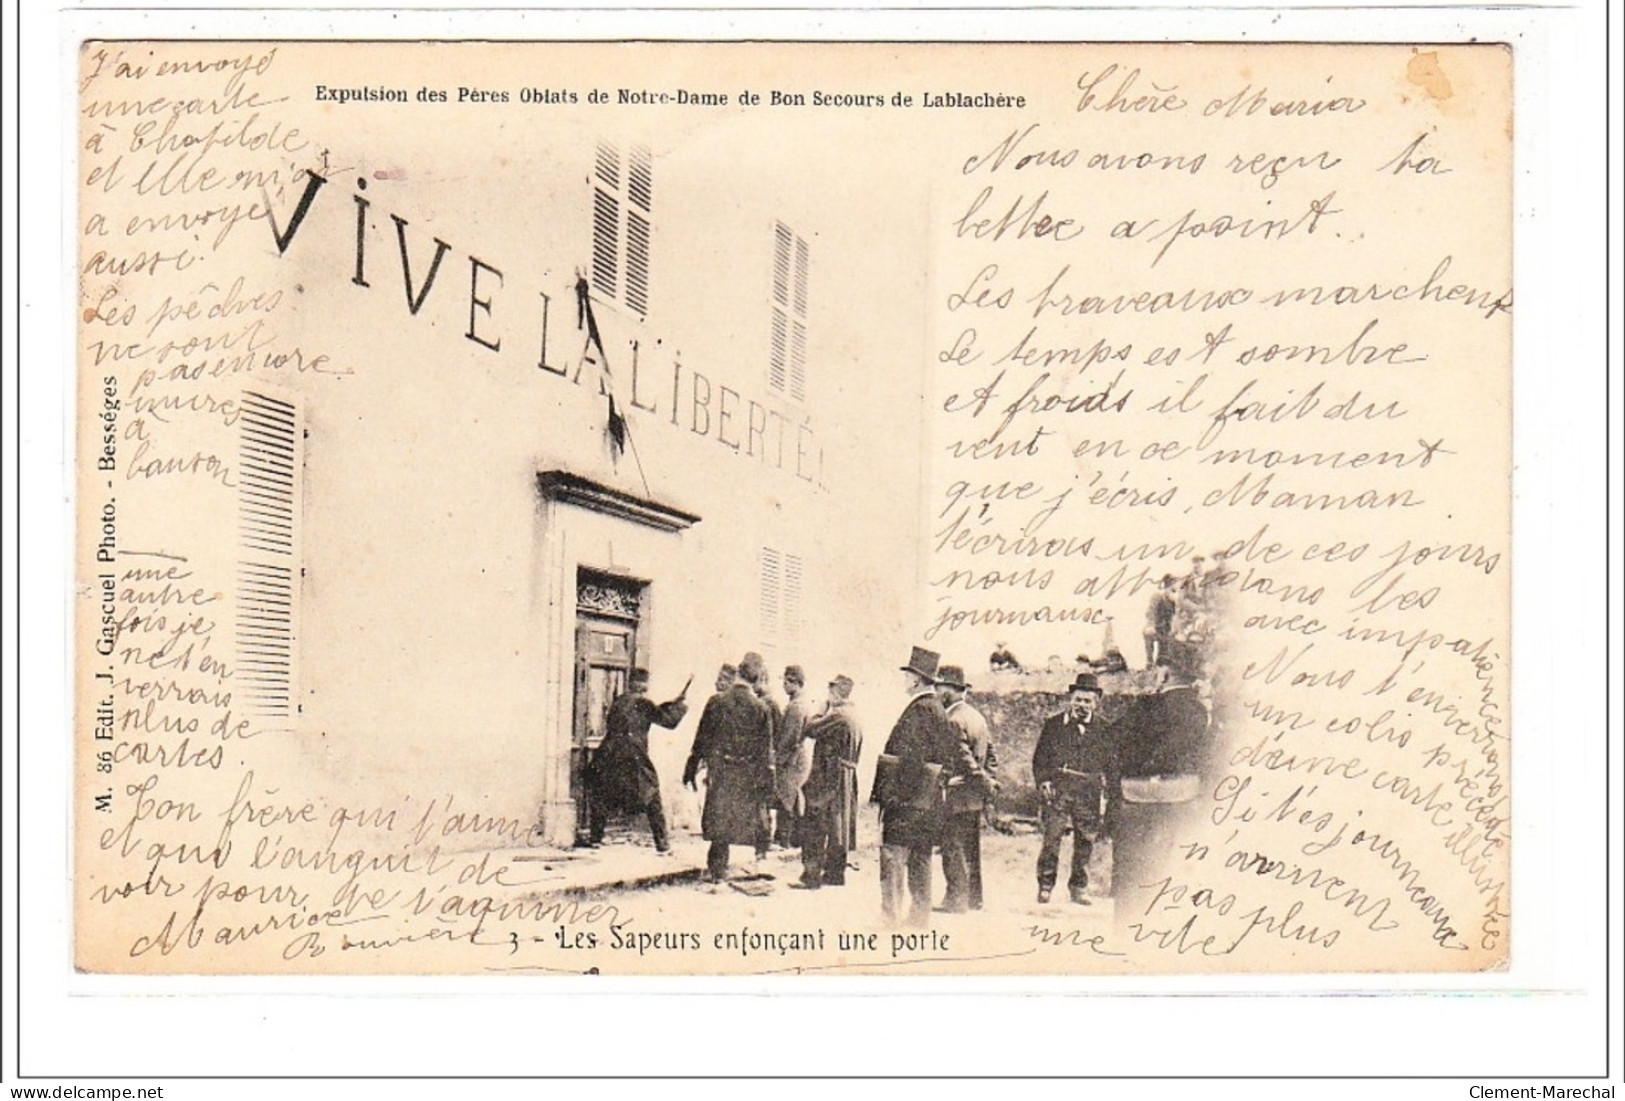 Expulsion des Pères Oblats de Notre-Dame de Bon Secours de Lablachère
Chère Maria
Nous avons reçu ta
lettre a point.
Les traveaux marchent
Le temps est sombre
et froids il fait du
vent en ce moment
que j'écris, Maman
t'écriras un de ces jours
nous attendons les
journaux avec impatience
Nous t'enverrons
un colis précédé
d'une carte illustrée
Si tes journeaux
n'arrivent
pas plus
une vite
J'ai envoyé
une carte
à Chatilde
et Elle m'en
a envoyé
aussi.
Les pêches
ne sont
pas encore
mures
à
bauson
une
autre
fois je
ne t'en
verrais
plus de
cartes.
Ton frère qui t'aime
et qui languit de
voir pour te
Maurice
Rouvière
VIVE LA LIBERTÉ!
M. 86 Edit. J. Gascuel Photo. - Bességes
3 - Les Sapeurs enfonçant une porte
Clement-Marechal